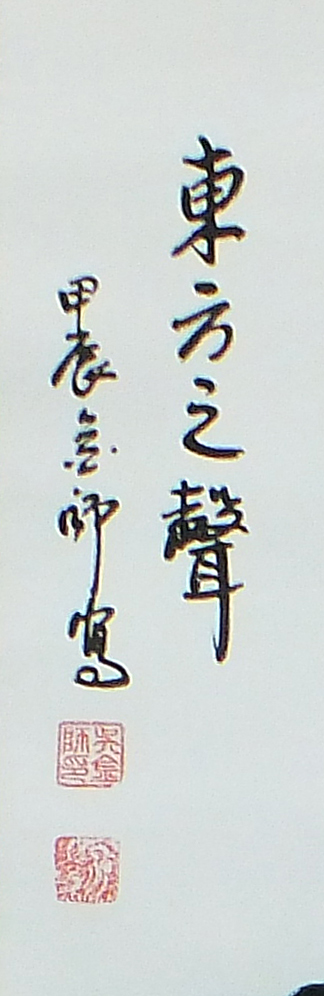 東方之聲
甲辰金師寫
吳金師印